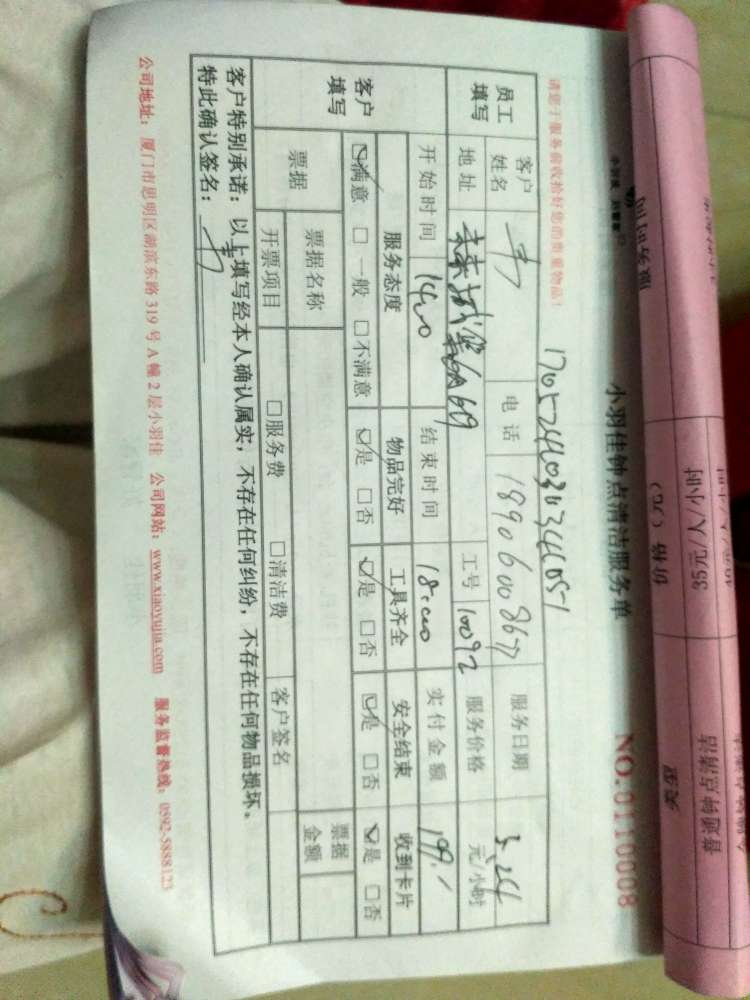 价格(元)
35元/人/小时
类型
普通钟点清洁
服务时间
小羽佳钟点清洁服务单
NO.0110008
请您于服务前收拾好您的贵重物品!
员工填写
客户姓名
电话 18906008677
服务日期 5.24
地址
工号 10092
服务价格 元/小时
开始时间 14:00
结束时间 18:00
实付金额 199.
客户填写
服务态度 物品完好 工具齐全 安全结束 收到卡片
☑满意 □一般 □不满意 ☑是 □否 ☑是 □否 ☑是 □否 ☑是 □否
票据
票据名称
票据金额
开票项目 □服务费 □清洁费 客户签名
客户特别承诺:以上填写经本人确认属实,不存在任何纠纷,不存在任何物品损坏。
特此确认签名:
公司地址:厦门市思明区湖滨东路 319 号 A 幢 2 层小羽佳 公司网站:www.xiaoyujia.com 服务监督热线:0592-5888123